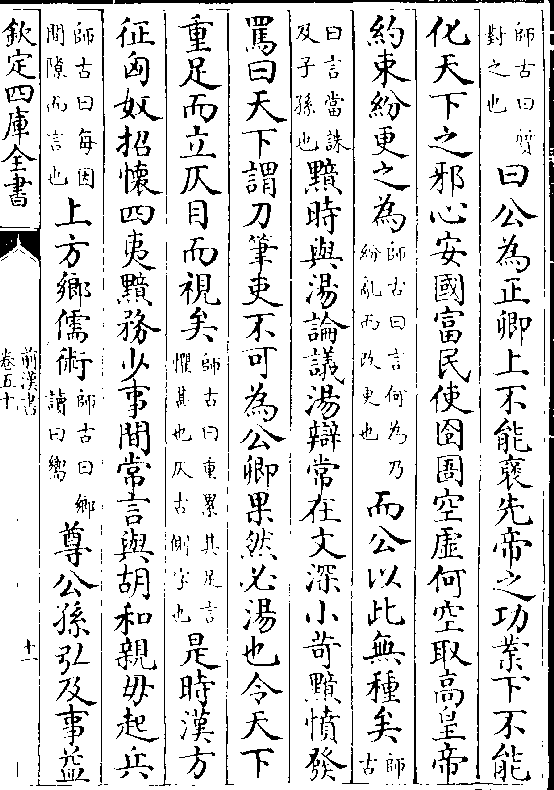 師古曰質對之也曰公為正卿上不能褒先帝之功業下不能
化天下之邪心安國富民使囹圄空虛何空取高皇帝
約束紛更之為師古曰言何為乃紛亂而改更也而公以此無種矣師古
曰言當誅及子孫也黯時與湯論議湯辯常在文深小苛黯憤發
罵曰天下謂刀筆吏不可為公卿果然必湯也令天下
重足而立仄目而視矣師古曰重累其足言懼甚也仄古側字也是時漢方
征匈奴招懷四夷黯務少事閒常言與胡和親毋起兵
師古曰每因閒隙而言也上方鄉儒術師古曰鄉讀曰嚮尊公孫弘及事益
欽定四庫全書
前漢書
卷五十
十一